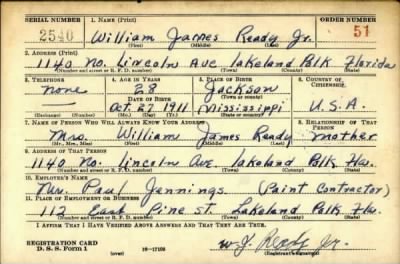 SERIAL NUMBER 1. NAME (Print) ORDER NUMBER
2540 William James Ready Jr. 51
(First) (Middle) (Last)
2. ADDRESS (Print)
1140 No. Lincoln Ave Lakeland Polk Florida
(Number and street or R. F. D. number) (Town) (County) (State)
3. TELEPHONE 4. AGE IN YEARS 5. PLACE OF BIRTH 6. COUNTRY OF CITIZENSHIP
none 28 Jackson
DATE OF BIRTH (Town or county)
— Oct. 27 1911 Mississippi U.S.A.
(Exchange) (Number) (Mo.) (Day) (Yr.) (State or country)
7. NAME OF PERSON WHO WILL ALWAYS KNOW YOUR ADDRESS 8. RELATIONSHIP OF THAT PERSON
Mrs. William James Ready Mother
(Mr., Mrs., Miss) (First) (Middle) (Last)
9. ADDRESS OF THAT PERSON
1140 No. Lincoln Ave. Lakeland Polk Fla.
(Number and street or R. F. D. number) (Town) (County) (State)
10. EMPLOYER'S NAME
Mr. Paul Jennings (Paint Contractor)
11. PLACE OF EMPLOYMENT OR BUSINESS
112 East Pine St. Lakeland Polk Fla.
(Number and street or R. F. D. number) (Town) (County) (State)
I AFFIRM THAT I HAVE VERIFIED ABOVE ANSWERS AND THAT THEY ARE TRUE.
REGISTRATION CARD
D. S. S. Form 1 (over) 16—17105 W. J. Ready Jr.
(Registrant's signature)